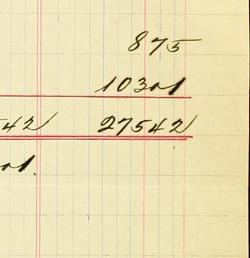 875
10301
542 27542